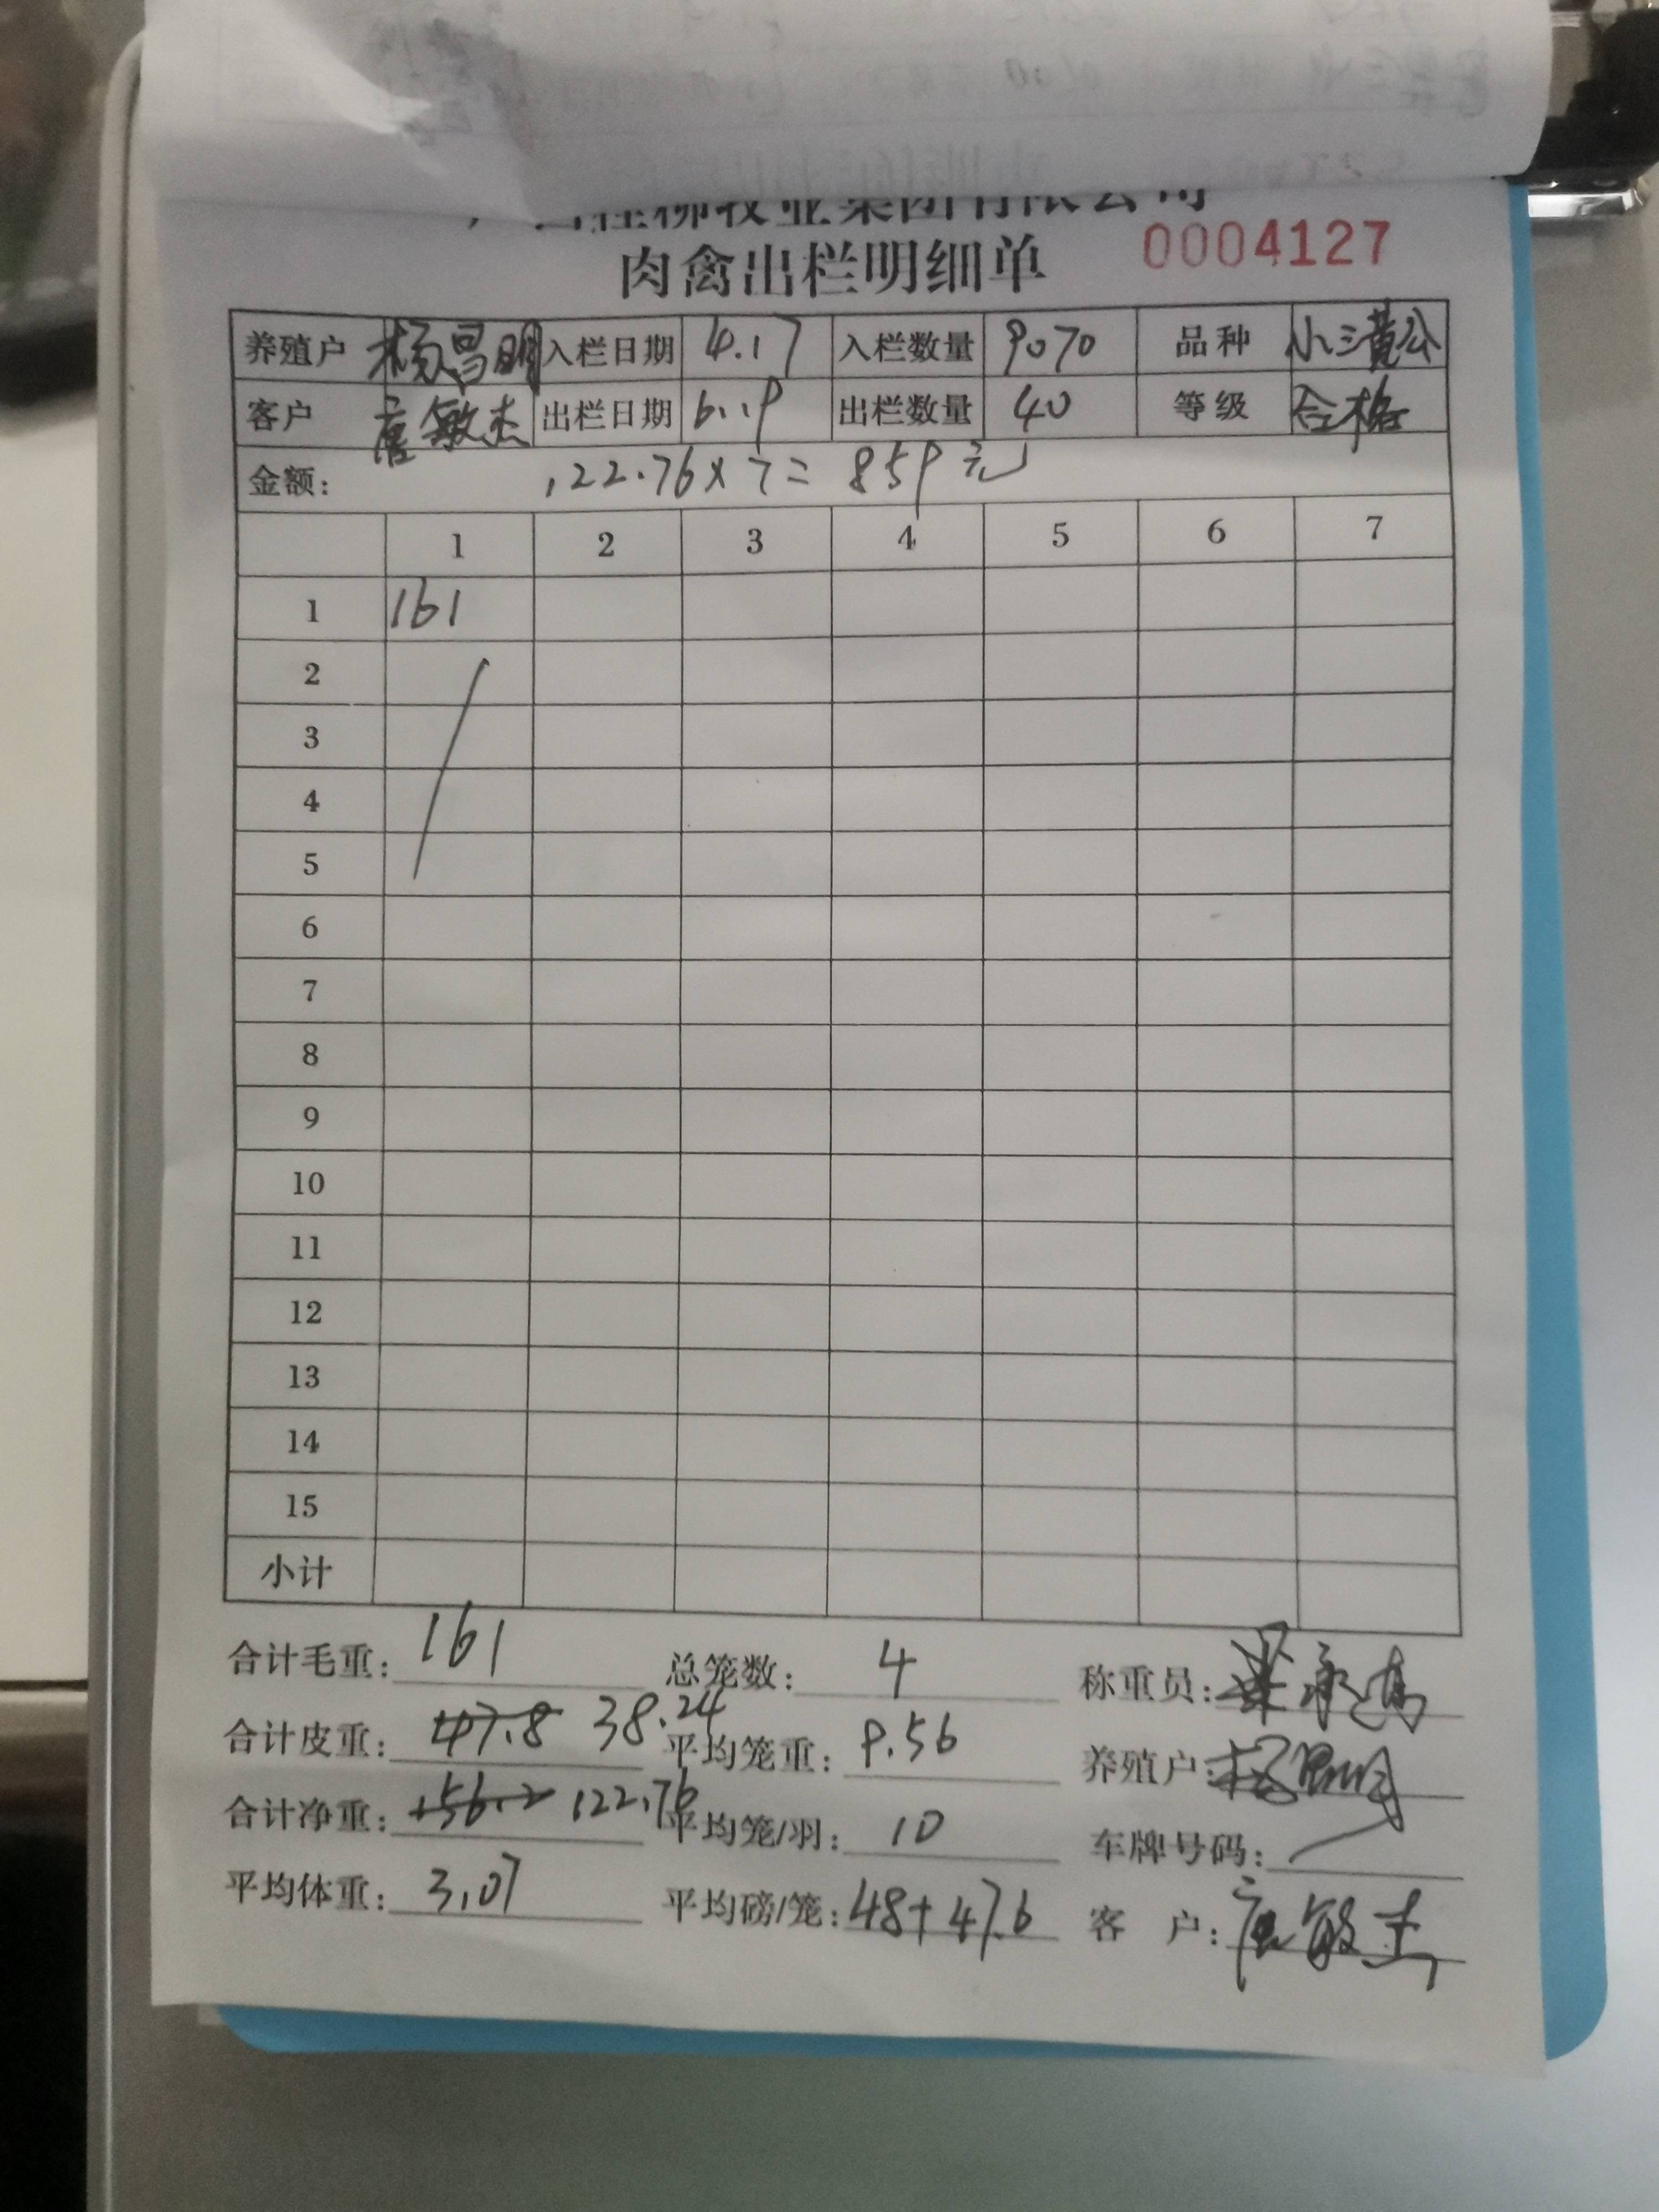 桂柳牧业集团有限公司
肉禽出栏明细单 0004127
养殖户 杨昌明 入栏日期 4.17 入栏数量 9070 品种 小三黄公
客户 唐敏杰 出栏日期 6.19 出栏数量 40 等级 合格
金额: 122.76×7=859元
1 2 3 4 5 6 7
1 161
2
3
4
5
6
7
8
9
10
11
12
13
14
15
小计
合计毛重: 161 总笼数: 4 称重员:
合计皮重: 47.8 38.24 平均笼重: 9.56 养殖户: 杨昌明
合计净重: 156.2 122.76 平均笼/羽: 10 车牌号码:
平均体重: 3.07 平均磅/笼: 48+47.6 客 户: 唐敏杰